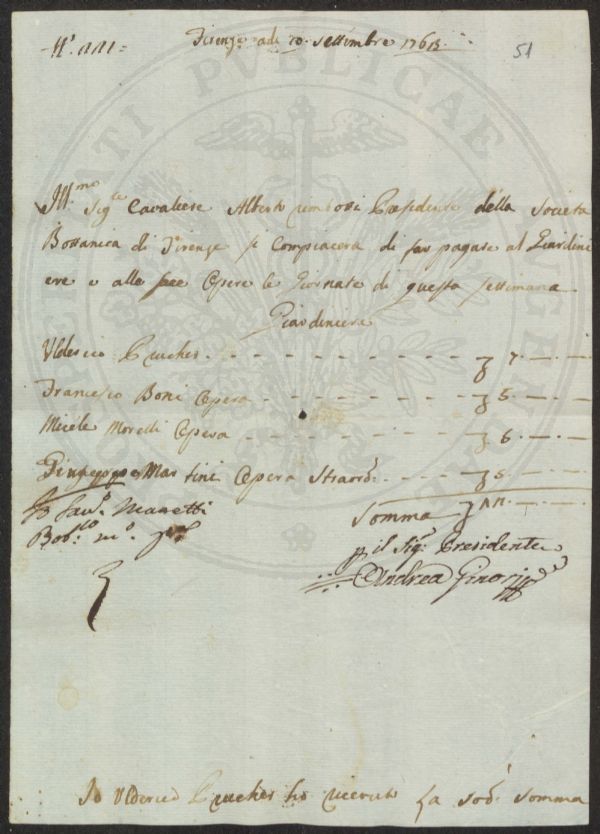 N.° 111=
Firenze adi 10. settembre 1763.
51
Ill.mo Sig.re Cavaliere Alberto Rimbotti Presidente della Società
Bottanica di Firenze si Compiacera di far pagare al Giardini
ere e alle sue Opere le Giornate di questa settimana
Giardiniere
Ulderico Prucher - - - - - - - - - 7. - -
Francesco Boni Opera - - - - - - - 5. - -
Micele Morelli Opera - - - - - - - 6. - -
Giuseppe Martini Opera Straord. - - - 5. - -
Somma
Sav.o Manetti
p il Sig.e Presidente
Andrea Ginori
Io Ulderico Prucher ho ricevuto La sod.a somma